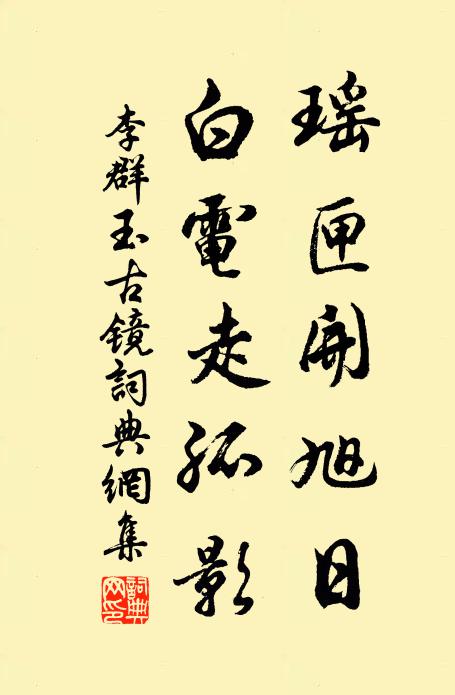 瑶匣開旭日
白電走孤影
李群玉古镜詞典網集
詞典网印